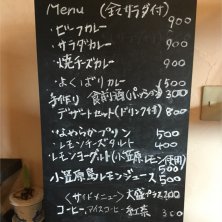 Menu (全てサラダ付)
・ビーフカレー 900
・サラダカレー 900
・焼チーズカレー 900
・よくばりカレー
手作り
デザートセット(ドリンク付) 800
・なめらかプリン 500
・レモンチーズタルト 400
・レモンヨーグルト(小笠原レモン使用)
小笠原島レモンジュース 500
〈サイドメニュー〉大盛プラス200
コーヒー、アイスコーヒー・紅茶 300